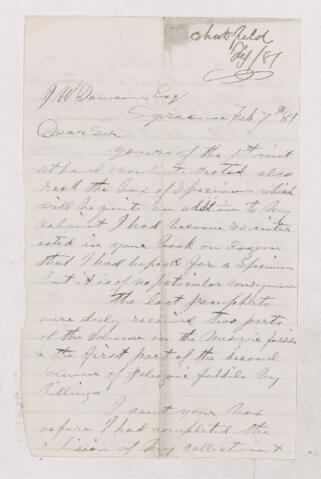 Chatfield
Feb/81
J W Dawson Esq
Syracuse Feb 7th 81
Dear Sir
Yours of the 1st inst
at hand contents noted also
recd the box of Specimens which
will be quite an addition to my
cabinet I had become so inter
ested in your book on Eozoon
that I had hoped for a Specimen
but it is of no particular consequence
The last pamphlets
were duly received two parts
of the volume on the Mesozoic fossils
& the first part of the second
volume of paleozoic fossils by
Billings
I sent your box
before I had completed the
division of my collection &